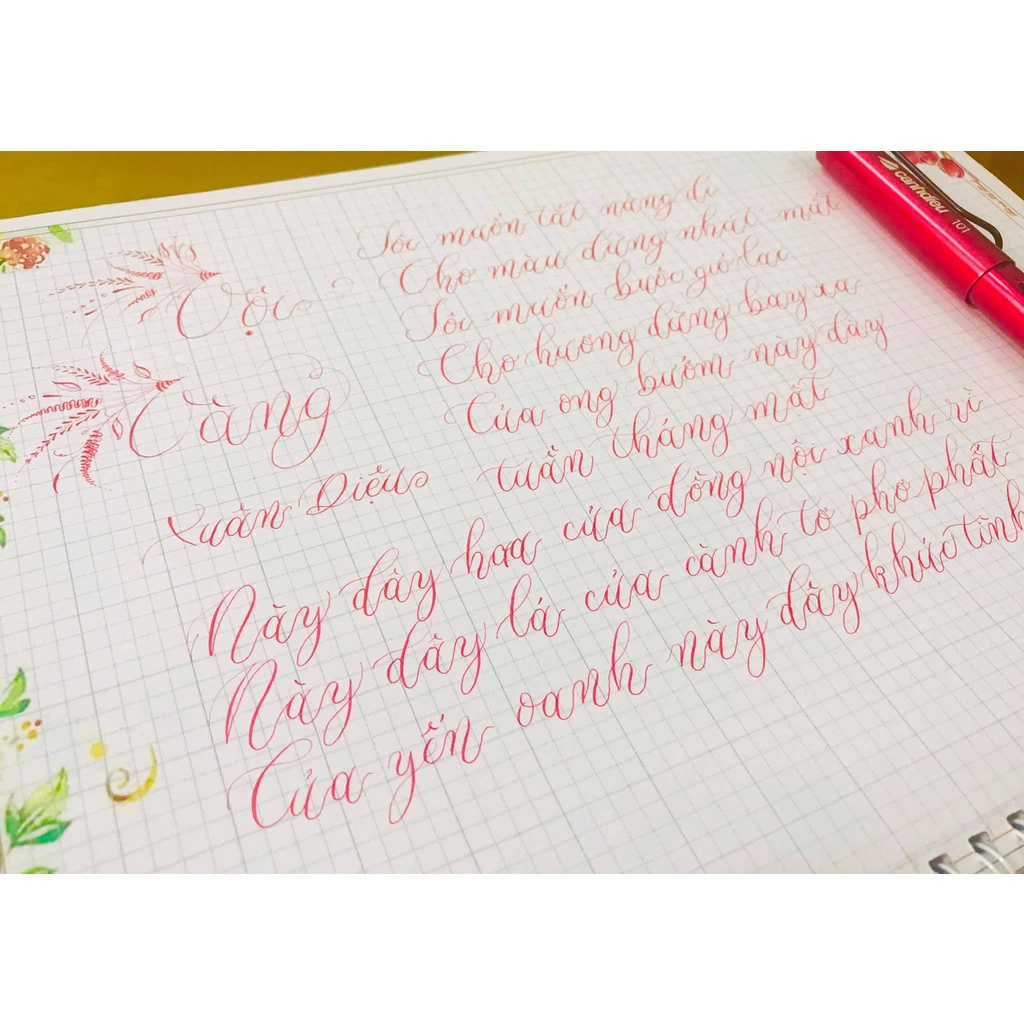 Vội
Vàng
Xuân Diệu
Tôi muốn tắt nắng đi
Cho màu đừng nhạt mất
Tôi muốn buộc gió lại
Cho hương đừng bay xa
Của ong bướm này đây
tuần tháng mật
Này đây hoa của đồng nội xanh rì
Này đây lá của cành tơ phơ phất
Của yến oanh này đây khúc tình
canhdieu 101